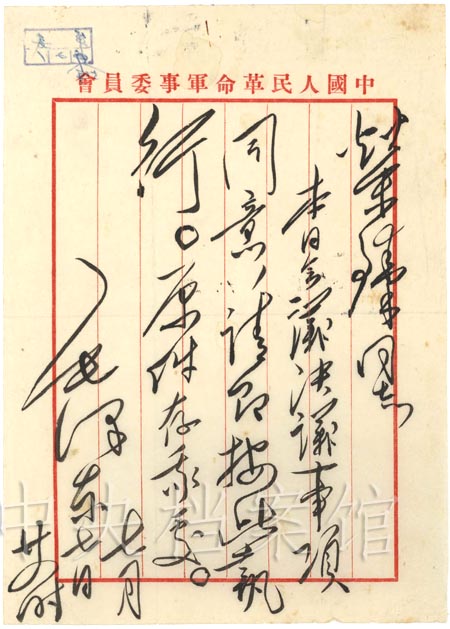 中國人民革命軍事委員會
榮臻同志
本日会議決議事項
同意，請即按此執
行。原件存我处。
毛澤东
七月
七日
廿四时
中央档案馆